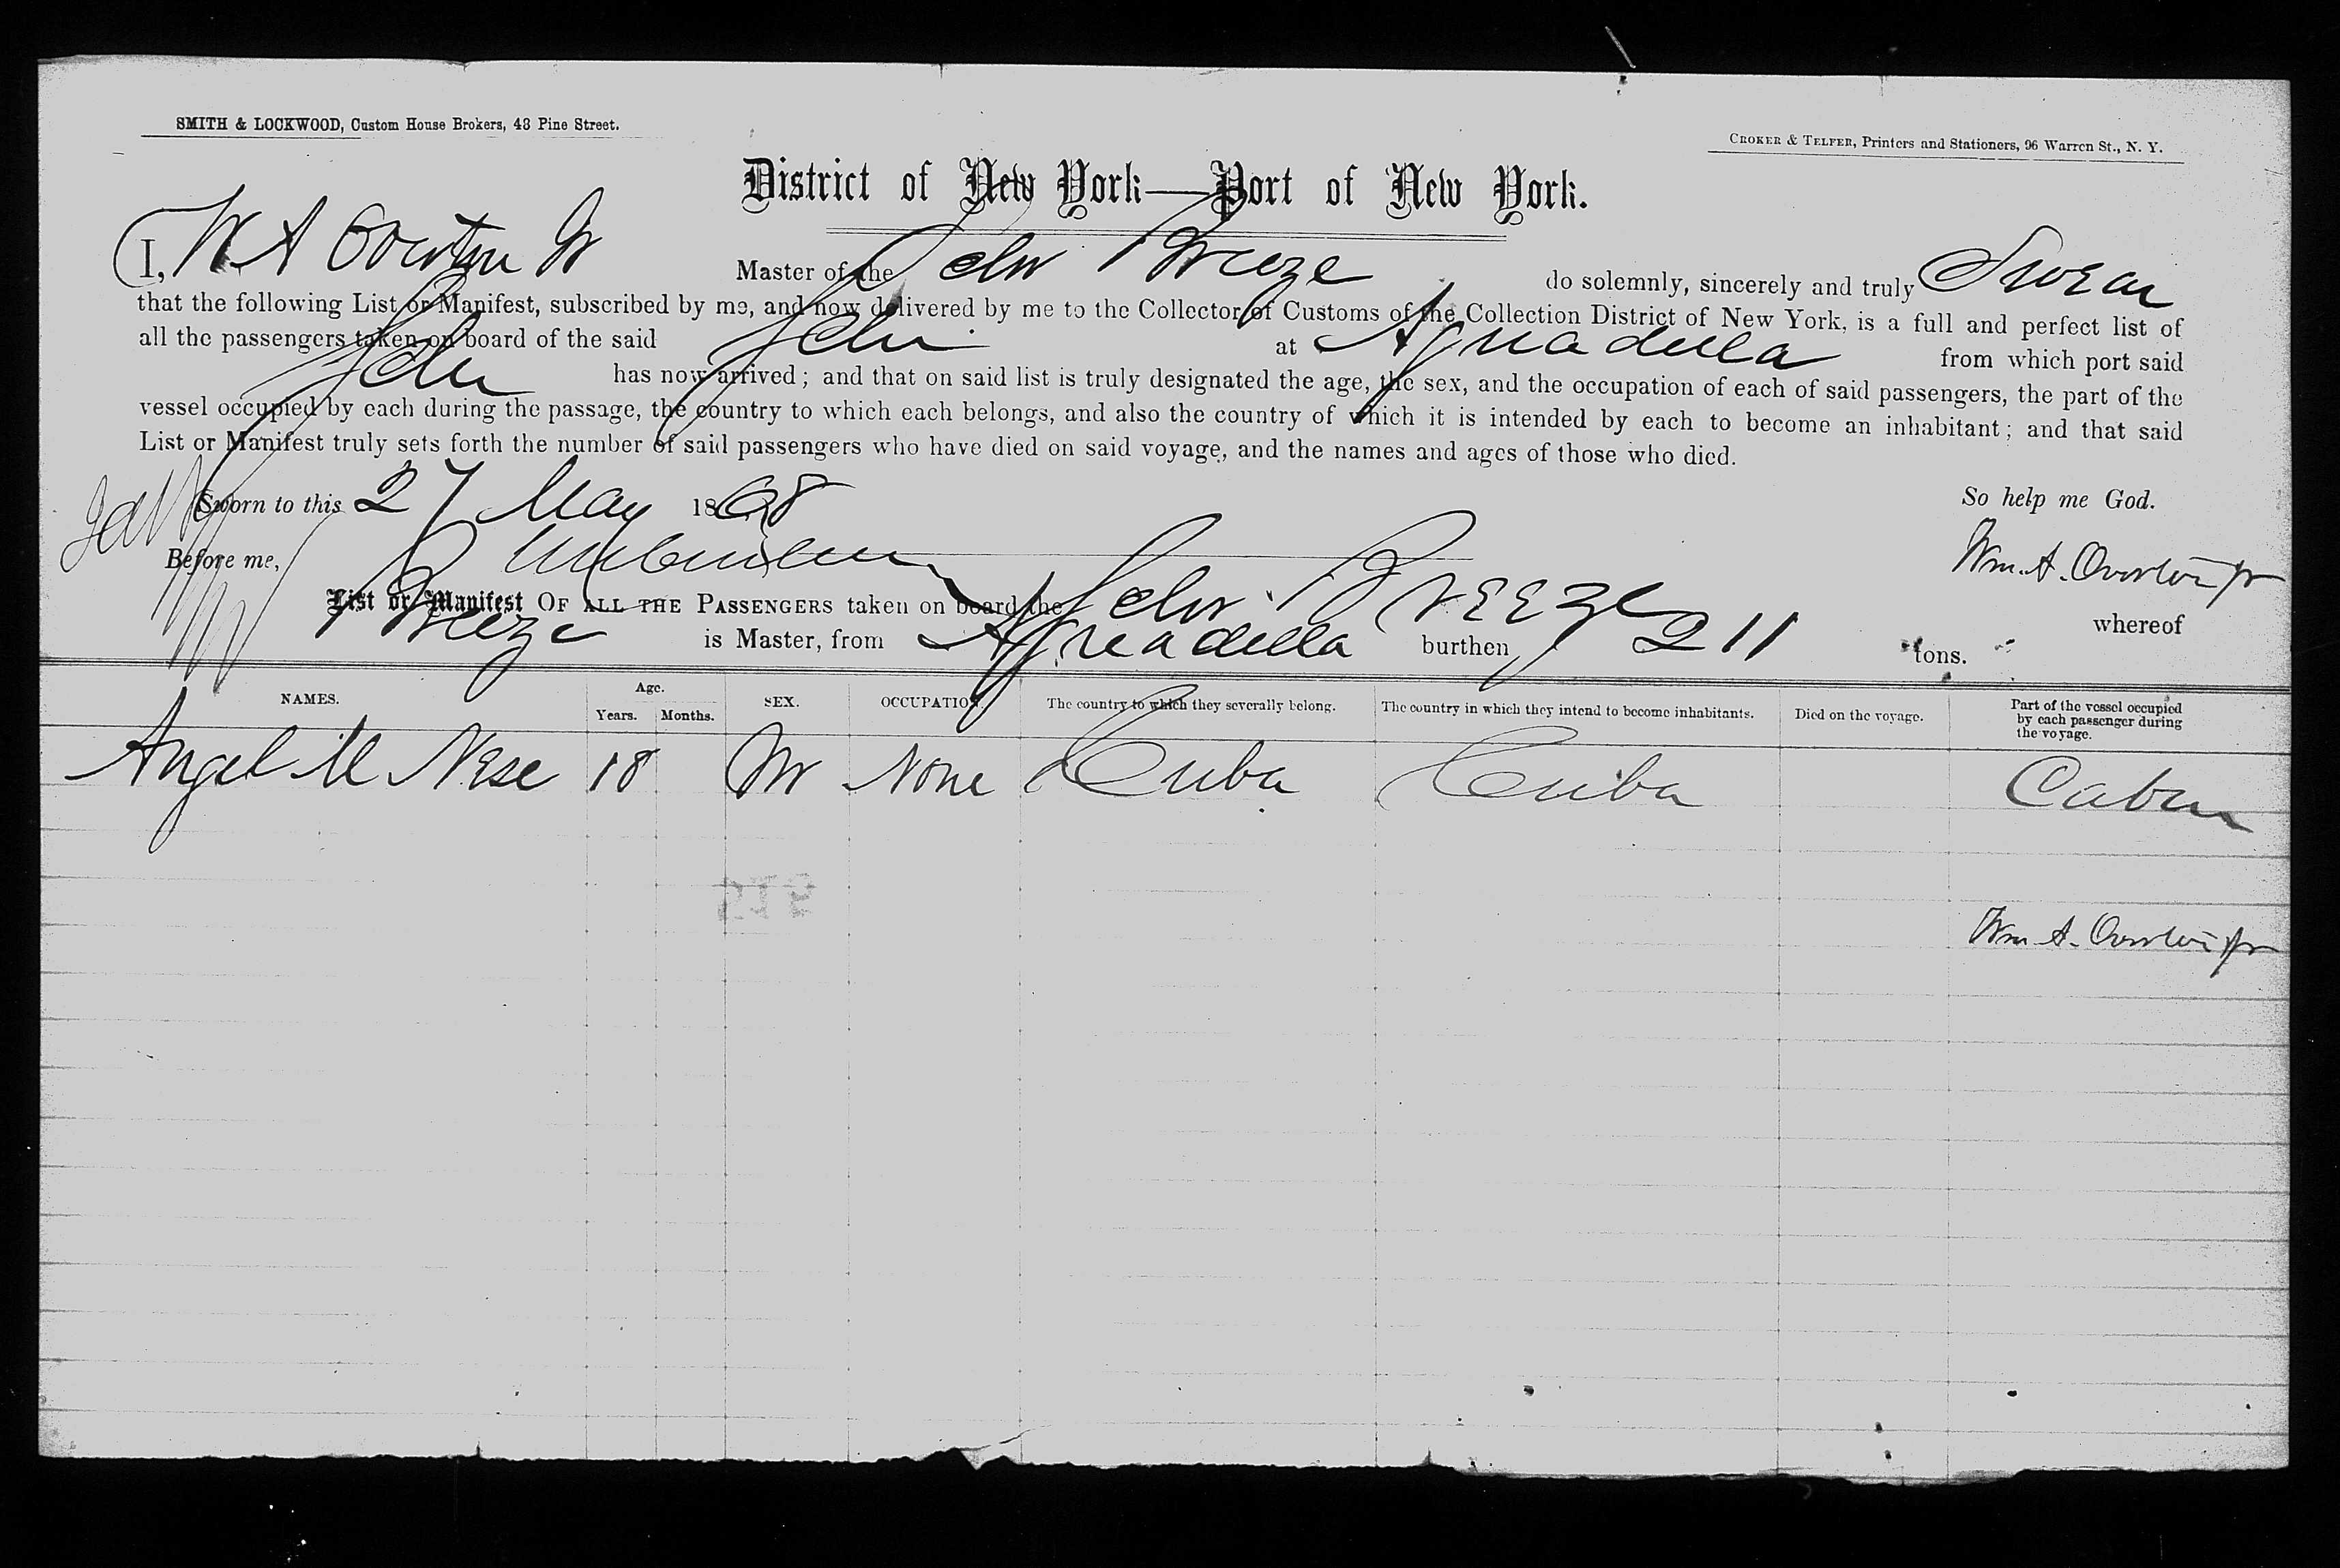 SMITH & LOCKWOOD, Custom House Brokers, 48 Pine Street.
CROKER & TELFER, Printers and Stationers, 96 Warren St., N. Y.
District of New York—Port of New York.
I, W A Overton Jr Master of the Schr Breeze do solemnly, sincerely and truly Swear
that the following List or Manifest, subscribed by me, and now delivered by me to the Collector of Customs of the Collection District of New York, is a full and perfect list of
all the passengers taken on board of the said Schr at Aguadella from which port said
Schr has now arrived; and that on said list is truly designated the age, the sex, and the occupation of each of said passengers, the part of the
vessel occupied by each during the passage, the country to which each belongs, and also the country of which it is intended by each to become an inhabitant; and that said
List or Manifest truly sets forth the number of said passengers who have died on said voyage, and the names and ages of those who died.
Sworn to this 27 May 1868 So help me God.
Before me, Wm. A. Overton Jr
List or Manifest OF ALL THE PASSENGERS taken on board the Schr Breeze whereof
Breeze is Master, from Aguadella burthen 211 tons.
NAMES. Age. Years. Months. SEX. OCCUPATION. The country to which they severally belong. The country in which they intend to become inhabitants. Died on the voyage. Part of the vessel occupied by each passenger during the voyage.
Angel M Nese 18 M None Cuba Cuba Cabin
Wm. A. Overton Jr